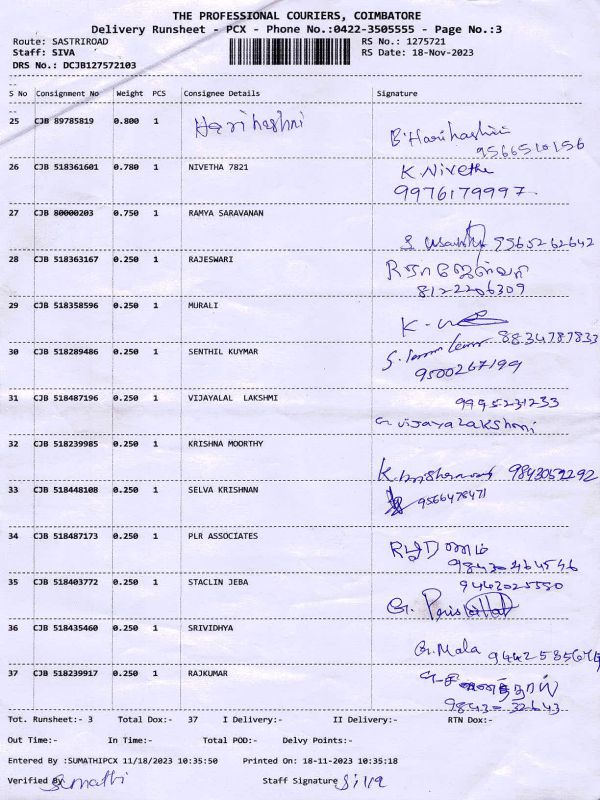 THE PROFESSIONAL COURIERS, COIMBATORE
Delivery Runsheet - PCX - Phone No.:0422-3505555 - Page No.:3
Route: SASTRIROAD RS No.: 1275721
Staff: SIVA RS Date: 18-Nov-2023
DRS No.: DCJB127572103
S No Consignment No Weight PCS Consignee Details Signature
25 CJB 89785819 0.800 1 Harihashni B. Harihashini
9566510156
26 CJB 518361601 0.780 1 NIVETHA 7821 K. Nivetha
9976179997
27 CJB 80000203 0.750 1 RAMYA SARAVANAN
9965262642
28 CJB 518363167 0.250 1 RAJESWARI
8122206309
29 CJB 518358596 0.250 1 MURALI
8834787833
30 CJB 518289486 0.250 1 SENTHIL KUYMAR
9500267199
31 CJB 518487196 0.250 1 VIJAYALAL LAKSHMI 9995231233
G. vijayalakshmi
32 CJB 518239985 0.250 1 KRISHNA MOORTHY
33 CJB 518448108 0.250 1 SELVA KRISHNAN
9566478471
34 CJB 518487173 0.250 1 PLR ASSOCIATES
35 CJB 518403772 0.250 1 STACLIN JEBA 9442025550
36 CJB 518435460 0.250 1 SRIVIDHYA
G. Mala
37 CJB 518239917 0.250 1 RAJKUMAR
9843- 32643
Tot. Runsheet:- 3 Total Dox:- 37 I Delivery:- II Delivery:- RTN Dox:-
Out Time:- In Time:- Total POD:- Delvy Points:-
Entered By :SUMATHIPCX 11/18/2023 10:35:50 Printed On: 18-11-2023 10:35:18
Verified By Sumathi Staff Signature Siva